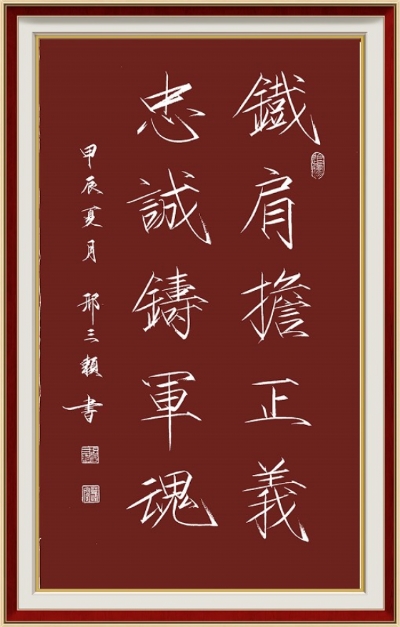 鐵肩擔正義
忠誠鑄軍魂
甲辰夏月 邢三穎書